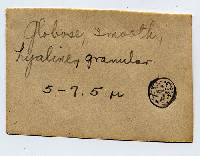 Globose, smooth,
hyaline, granular
5-7.5 µ